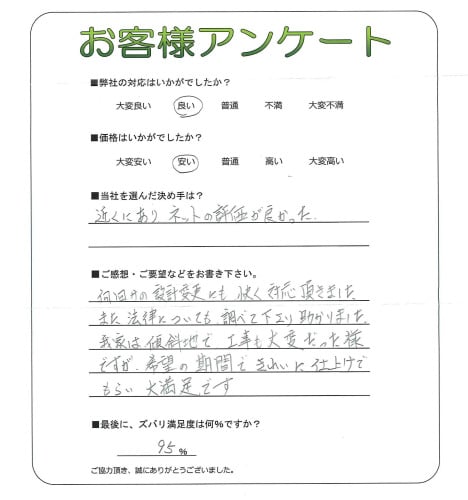 お客様アンケート
■弊社の対応はいかがでしたか？
大変良い 良い 普通 不満 大変不満
■価格はいかがでしたか？
大変安い 安い 普通 高い 大変高い
■当社を選んだ決め手は？
近くにあり ネットの評価が良かった．
■ご感想・ご要望などをお書き下さい。
何回かの設計変更にも快く対応頂きました
また法律についても調べて下さり助かりました．
我家は傾斜地で工事も大変だった様
ですが、希望の期間できれいに仕上げて
もらい大満足です
■最後に、ズバリ満足度は何％ですか？
95 %
ご協力頂き、誠にありがとうございました。